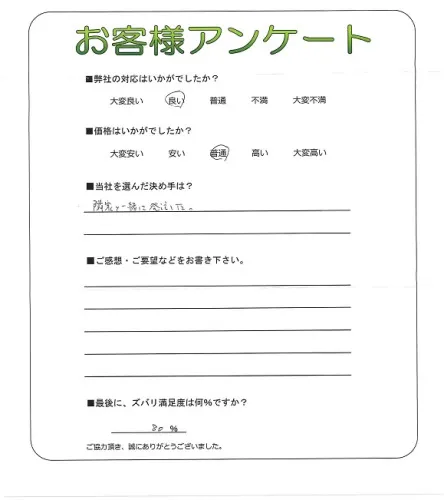 お客様アンケート
■弊社の対応はいかがでしたか？
大変良い 良い 普通 不満 大変不満
■価格はいかがでしたか？
大変安い 安い 普通 高い 大変高い
■当社を選んだ決め手は？
隣家と一緒に発注した。
■ご感想・ご要望などをお書き下さい。
■最後に、ズバリ満足度は何%ですか？
80 %
ご協力頂き、誠にありがとうございました。